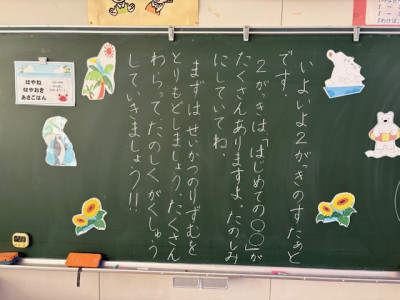 いよいよ２がっきのすたぁと
です。
２がっきは、「はじめての〇〇」が
たくさんありますよ。たのしみ
にしていてね。
まずは、せいかつのりずむを
とりもどしましょう。たくさん
わらって、たのしくがくしゅう
していきましょう!!
はやね
はやおき
あさごはん